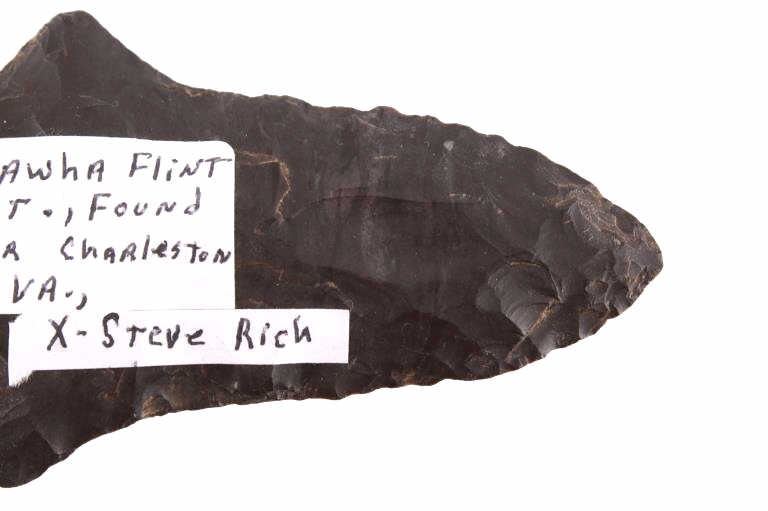 AWhA FliNT
T., FOUNd
R ChARlesTON
VA.,
X-STeve Rich